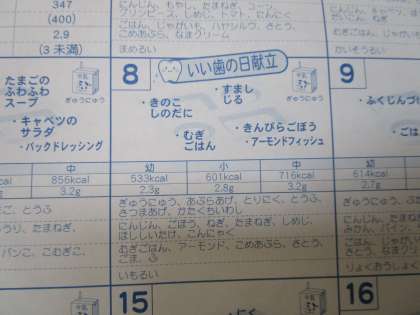 347
(400)
2.9
(3 未満)
にんじん、もやし、たまねぎ、コーン
グリンピース、しめじ、トマト、にんにく
ごはん、じゃがいも、ハヤシルウ、さとう、
こめあぶら、なまクリーム
まめるい
たまごの
ふわふわ
スープ
ぎゅうにゅう
・キャベツの
サラダ
・パックドレッシング
中
856kcal
3.2g
8
いい歯の日献立
・きのこ
しのだに
・すまし
じる
・むぎ
ごはん
・きんぴらごぼう
・アーモンドフィッシュ
幼
小
中
533kcal
601kcal
716kcal
2.3g
2.8g
3.2g
ぎゅうにゅう、あぶらあげ、とりにく、とうふ
さつまあげ、かたくちいわし
にんじん、ごぼう、ねぎ、たまねぎ、しめじ、
ほししいたけ、こんにゃく
むぎごはん、アーモンド、こめあぶら、さとう、
ごま、ふ
いもるい
9
・ふくじんづ
ごはん
幼
614kcal
かいそうるい
りょくおうしょく
15
16